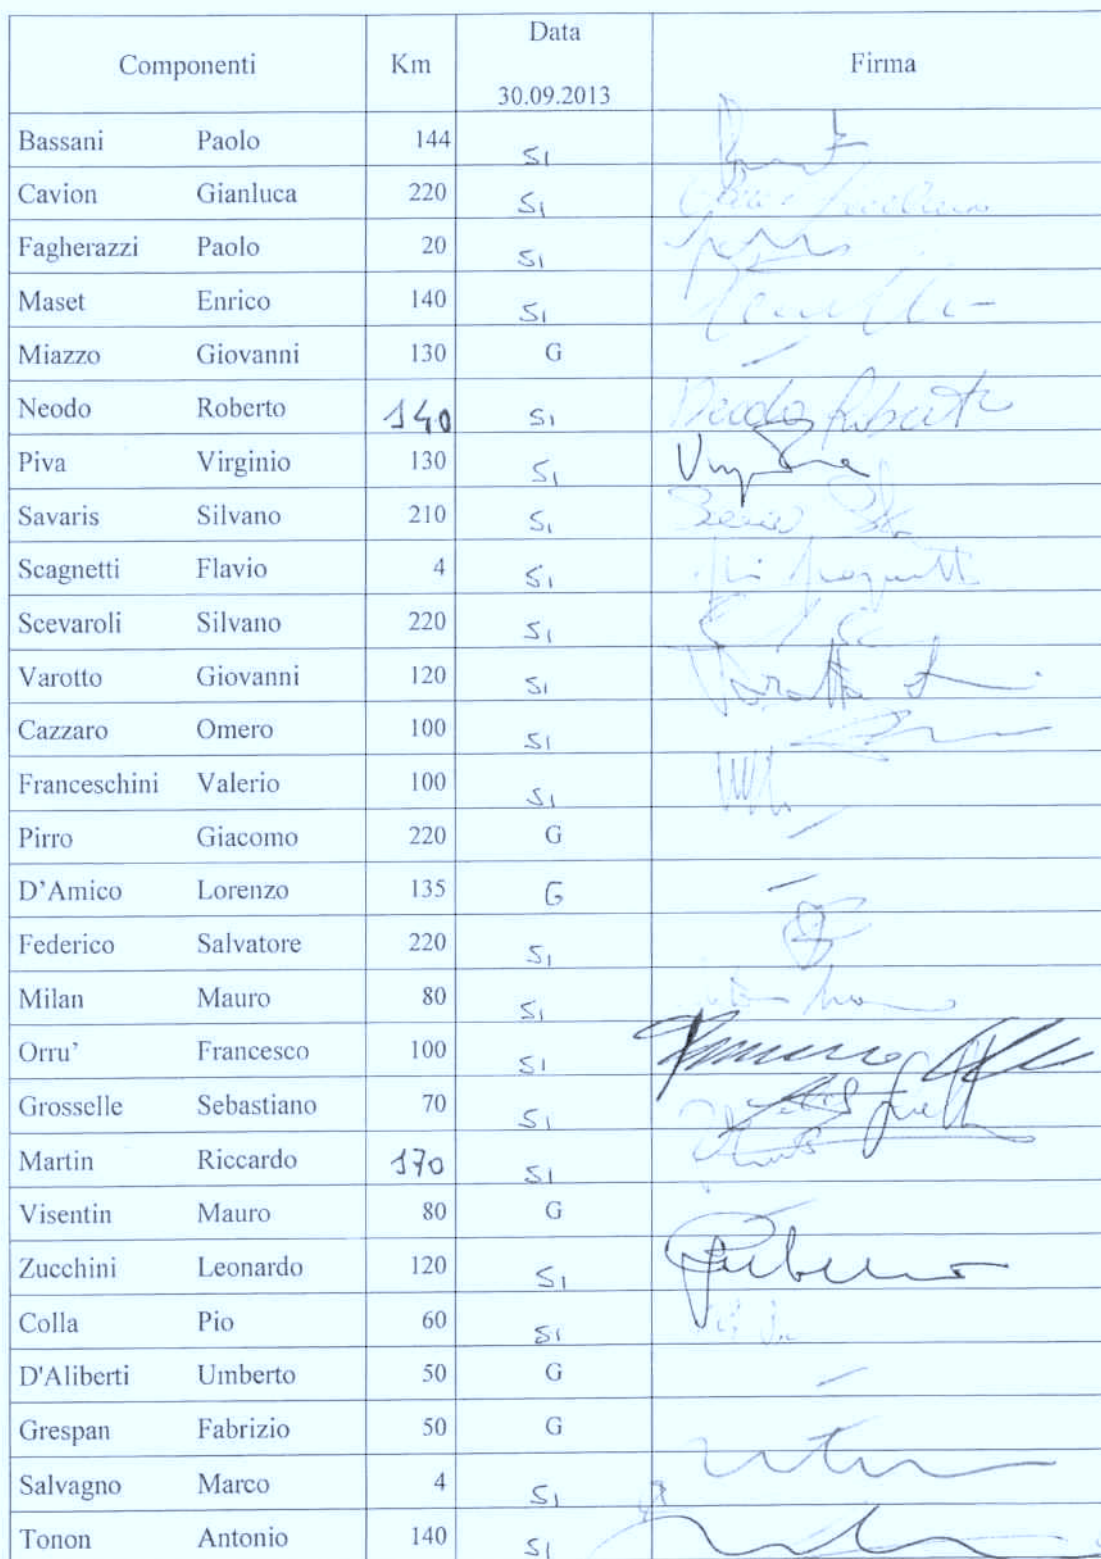 Componenti Km Data 30.09.2013 Firma
Bassani Paolo 144 SI
Cavion Gianluca 220 SI
Fagherazzi Paolo 20 SI
Maset Enrico 140 SI
Miazzo Giovanni 130 G –
Neodo Roberto 140 SI Neodo Roberto
Piva Virginio 130 SI
Savaris Silvano 210 SI
Scagnetti Flavio 4 SI
Scevaroli Silvano 220 SI
Varotto Giovanni 120 SI
Cazzaro Omero 100 SI
Franceschini Valerio 100 SI
Pirro Giacomo 220 G –
D’Amico Lorenzo 135 G –
Federico Salvatore 220 SI
Milan Mauro 80 SI
Orru’ Francesco 100 SI
Grosselle Sebastiano 70 SI
Martin Riccardo 170 SI
Visentin Mauro 80 G –
Zucchini Leonardo 120 SI
Colla Pio 60 SI
D'Aliberti Umberto 50 G –
Grespan Fabrizio 50 G
Salvagno Marco 4 SI
Tonon Antonio 140 SI